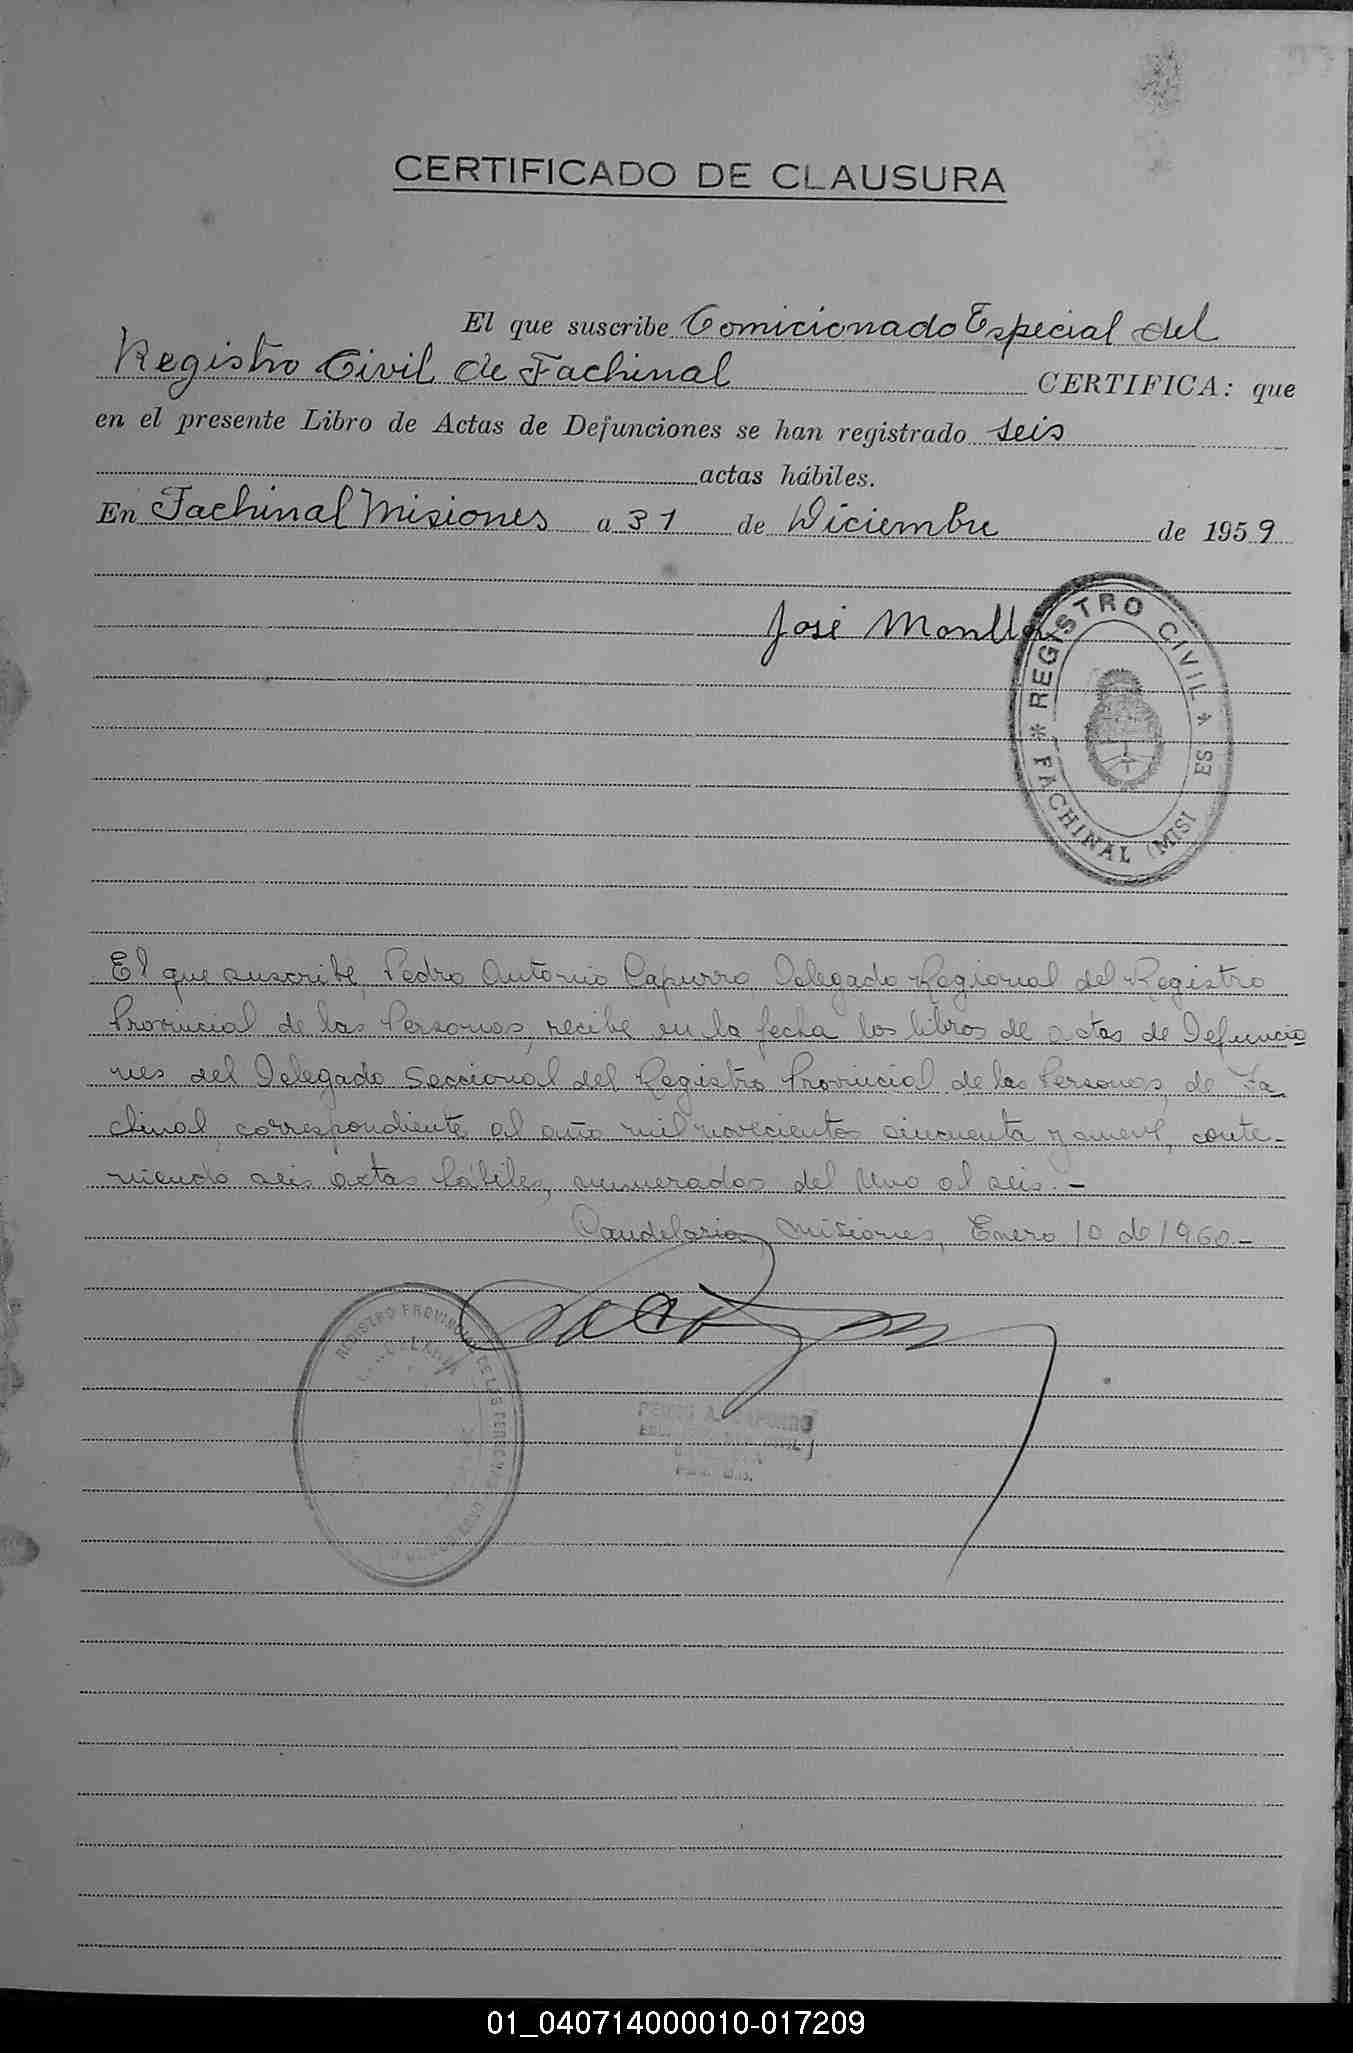 CERTIFICADO DE CLAUSURA
El que suscribe Comicionado Especial del
Registro Civil de Fachinal CERTIFICA: que
en el presente Libro de Actas de Defunciones se han registrado seis
actas hábiles.
En Fachinal Misiones a 31 de Diciembre de 1959
José
REGISTRO CIVIL
* FACHINAL (MISI ES *
El que suscribe, Pedro Antonio Capurro, Delegado Regional del Registro
Provincial de las Personas, recibe en la fecha los libros de actas de Defuncio
nes del Delegado Seccional del Registro Provincial de las Personas, de Fa
chinal, correspondiente al año mil novecientos cincuenta y nueve, conte-
niendo seis actas hábiles, numerados del Uno al seis.-
Candelaria, Misiones, Enero 10 de 1960.-
REGISTRO PROVINCIAL DE LAS PERSONAS
CANDELARIA
PEDRO A. CAPURRO
01_040714000010-017209